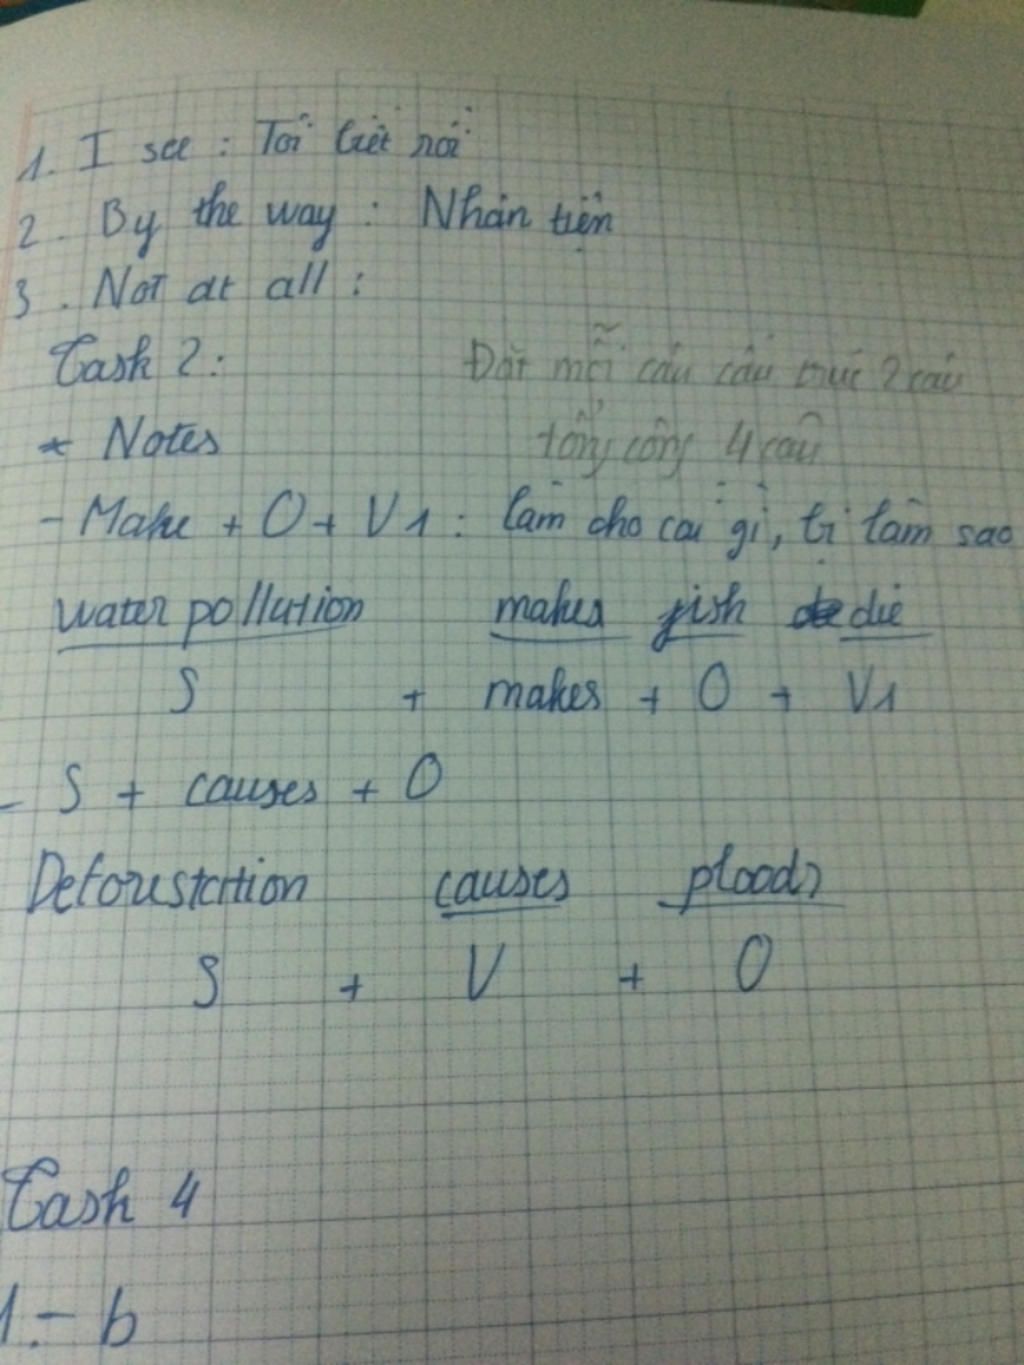 1. I see : Tôi biết rồi
2. By the way : Nhân tiện
3. Not at all :
Task 2: Đặt mỗi câu cấu trúc 2 câu
* Notes tổng cộng 4 câu
- Make + O + V1 : làm cho cái gì, bị làm sao
water pollution makes fish die
S + makes + O + V1
- S + causes + O
Deforestation causes floods
S + V + O
Task 4
1. - b